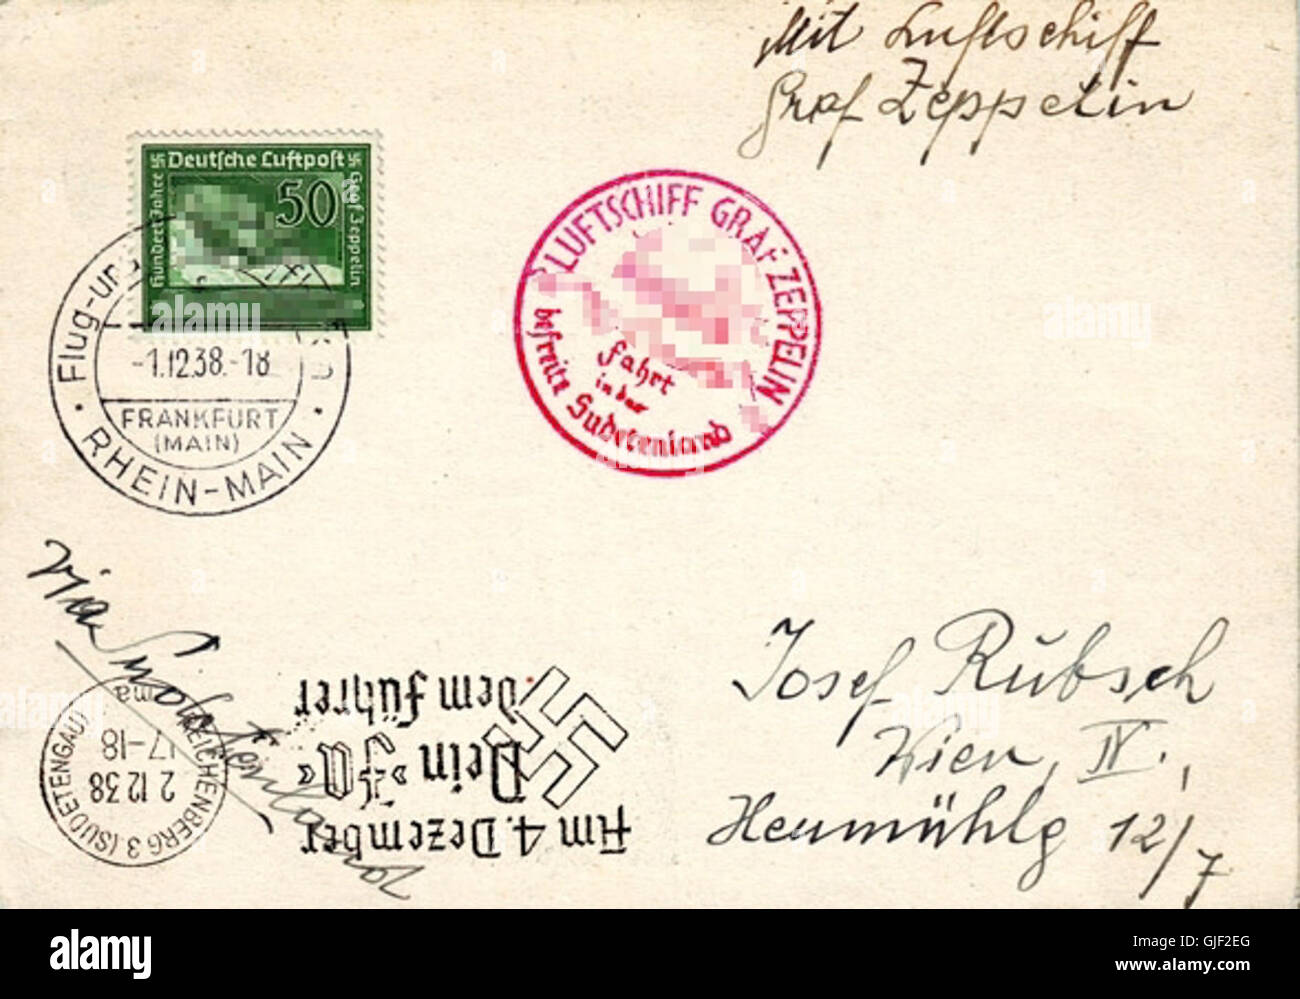 Mit Luftschiff
Graf Zeppelin
Deutsche Luftpost
Hundert Jahre
Graf Zeppelin
50
LUFTSCHIFF GRAF ZEPPELIN
fahrt
in das
befreite Sudetenland
Flug-
-1.12.38.-18
FRANKFURT
(MAIN)
RHEIN-MAIN
via Sudetenland
Am 4. Dezember
Dein »JA«
dem Führer
REICHENBERG 3 (SUDETENGAU)
2 12 38
17-18
Josef Rubsch
Wien, IV.,
Heumühlg 12/7
alamy
alamy
Image ID: GJF2EG
www.alamy.com